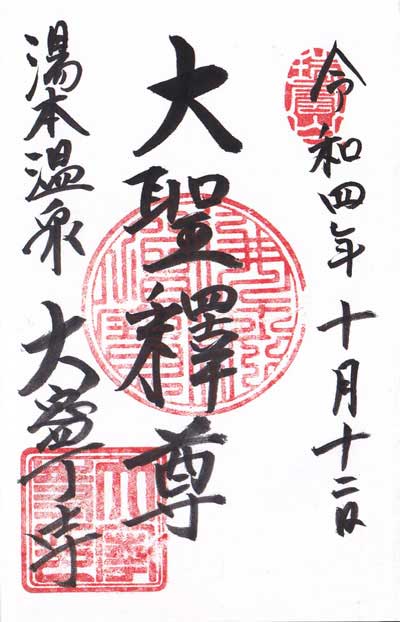 令和四年十月十二日
大聖釋尊
湯本温泉
大寧寺